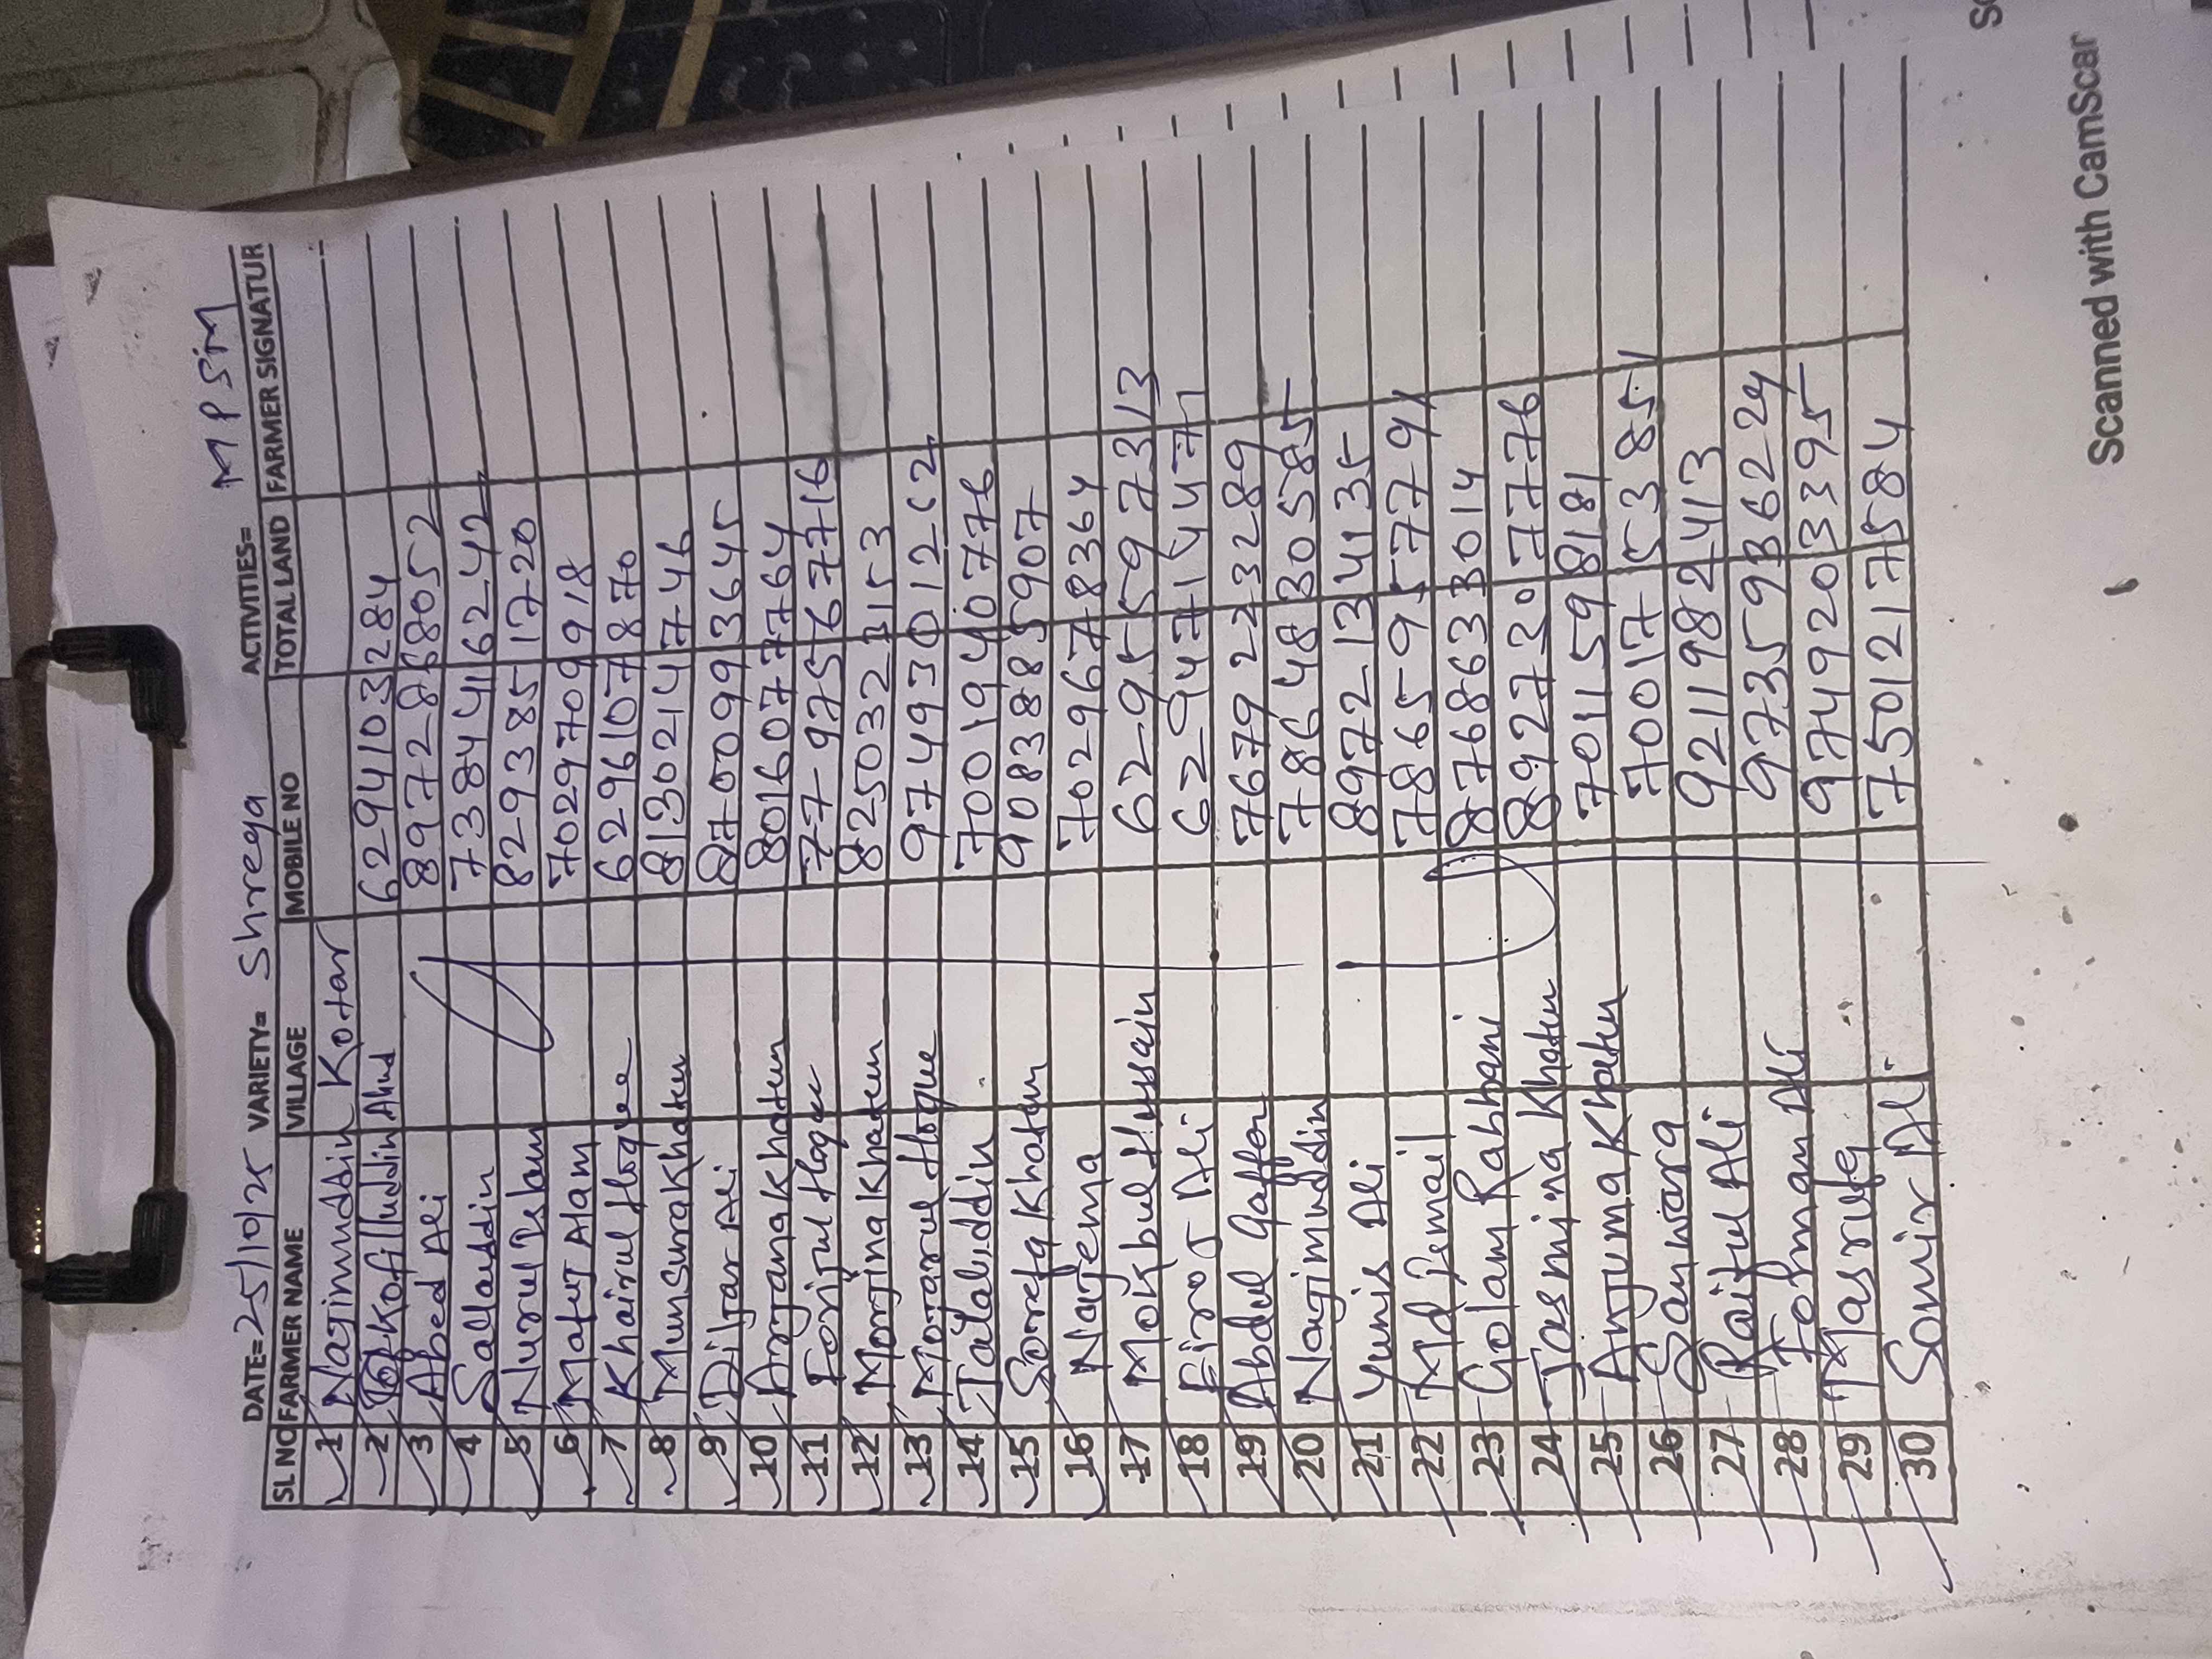 DATE=25/10/25 VARIETY= Shreya ACTIVITIES= MPSM
SL NO FARMER NAME VILLAGE MOBILE NO TOTAL LAND FARMER SIGNATUR
1 Najimuddin Kotar
2 Kofilluddin Ahmd 6294103284
3 Abed Ali 8972888052
4 Sallauddin 7384416242
5 Nurul Islam 8293851720
6 Mafuj Alam 7029709918
7 Khairul Hoque 6296107870
8 Munsura Khatun 8130214746
9 Diljar Ali 8700993645
10 Anjana Khatun 8016077764
11 Forijul Hoque 7797756716
12 Monjina Khatun 8250323153
13 Mojarul Hoque 9749301262
14 Jalaluddin 7001940776
15 Sorefa Khatun 9083885907
16 Najema 7029678364
17 Mokbul Hussain 6295597313
18 Firoj Ali
19 Abdul Gaffer 7679223289
20 Najimuddin 7864830585
21 Yunis Ali 8972134135
22 Md Jemail 7865957791
23 Golam Rabbani 8768633014
24 Jasmina Khatun 8927307776
25 Anjuma Khatun 7011598181
26 Sanwara 7001753851
27 Raiful Ali 9211982413
28 Folman Ali 9735936224
29 Masrufa 9749203395
30 Somir Ali 7501217584
Scanned with CamScar